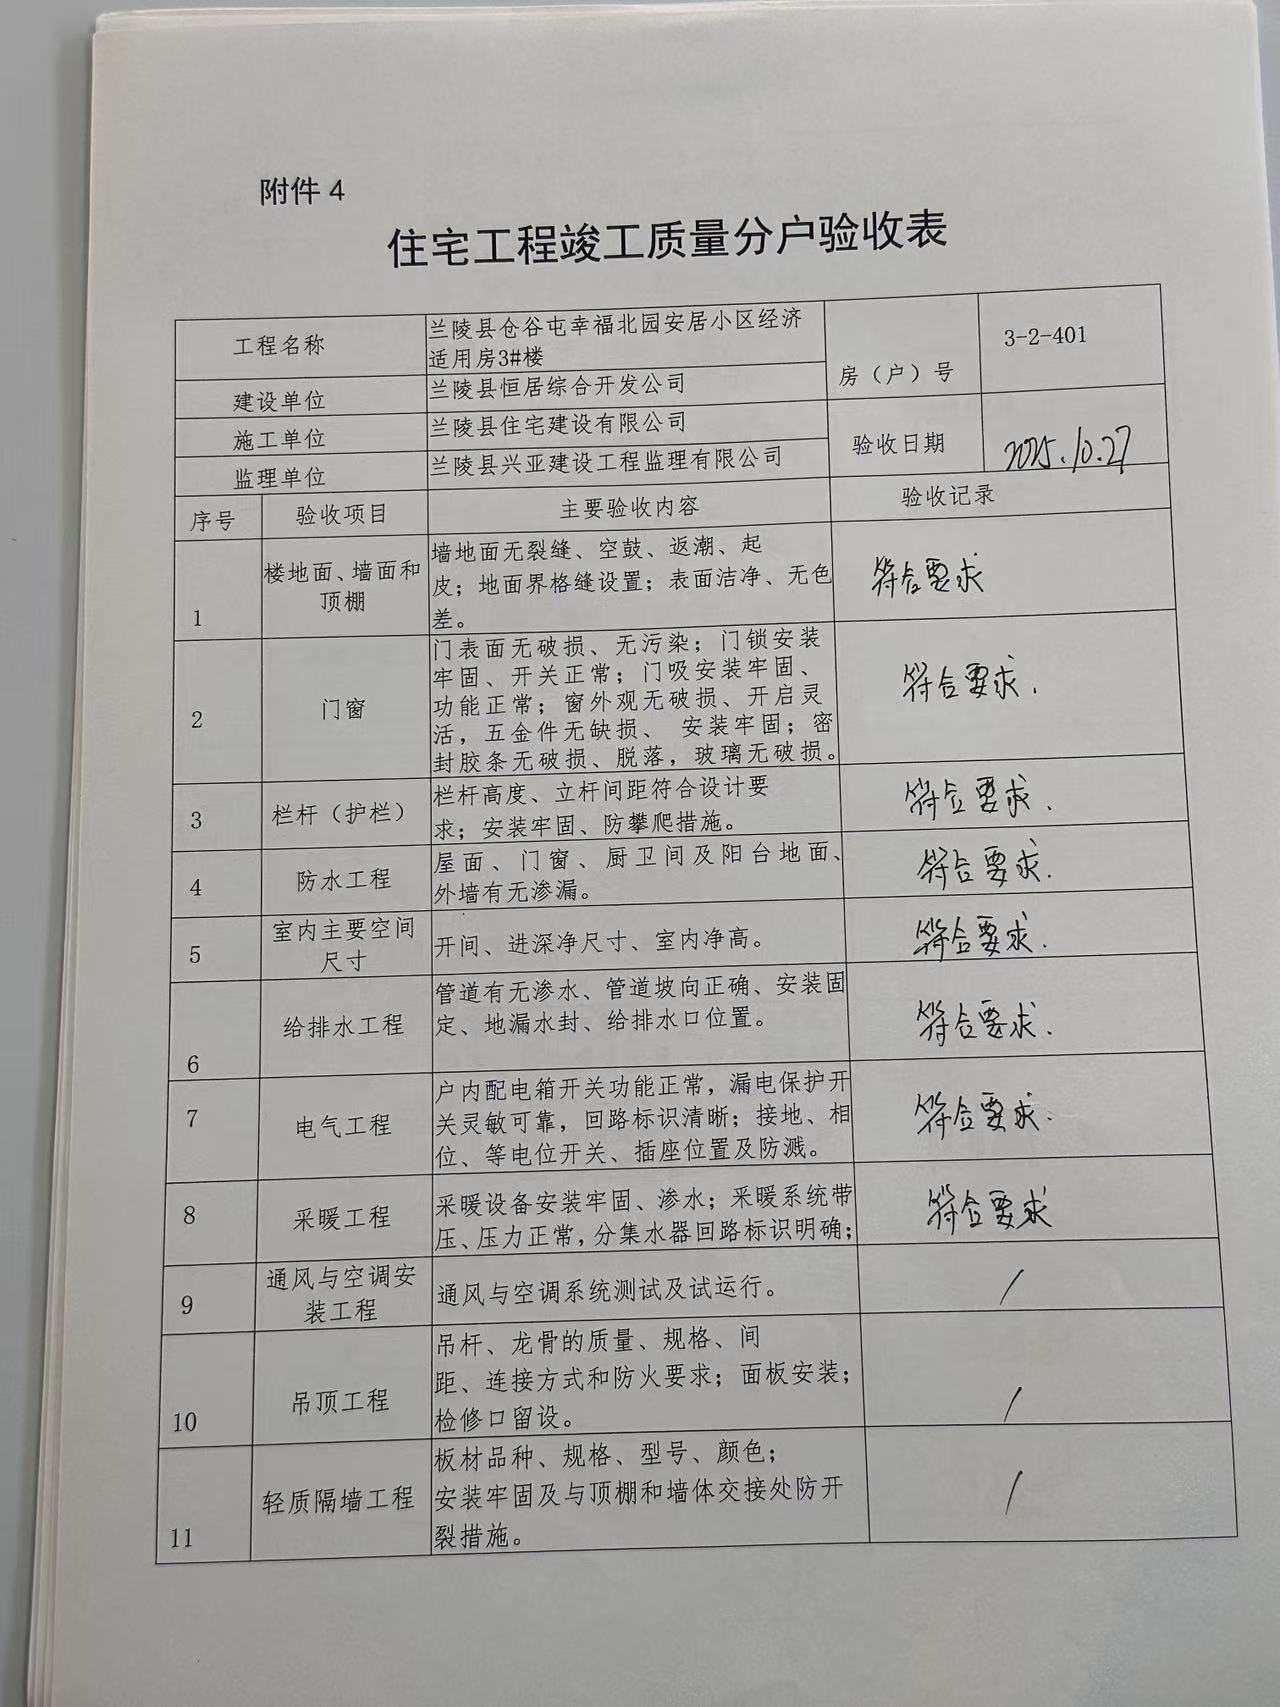 附件 4
住宅工程竣工质量分户验收表
工程名称
兰陵县仓谷屯幸福北园安居小区经济
适用房3#楼
房（户）号
3-2-401
建设单位
兰陵县恒居综合开发公司
施工单位
兰陵县住宅建设有限公司
验收日期
2025.10.27
监理单位
兰陵县兴亚建设工程监理有限公司
序号 验收项目 主要验收内容 验收记录
1
楼地面、墙面和
顶棚
墙地面无裂缝、空鼓、返潮、起
皮；地面界格缝设置；表面洁净、无色
差。
符合要求
2
门窗
门表面无破损、无污染；门锁安装
牢固、开关正常；门吸安装牢固、
功能正常；窗外观无破损、开启灵
活，五金件无缺损、 安装牢固；密
封胶条无破损、脱落，玻璃无破损。
符合要求.
3
栏杆（护栏）
栏杆高度、立杆间距符合设计要
求；安装牢固、防攀爬措施。
符合要求.
4
防水工程
屋面、门窗、厨卫间及阳台地面、
外墙有无渗漏。
符合要求.
5
室内主要空间
尺寸
开间、进深净尺寸、室内净高。
符合要求.
6
给排水工程
管道有无渗水、管道坡向正确、安装固
定、地漏水封、给排水口位置。
符合要求.
7
电气工程
户内配电箱开关功能正常，漏电保护开
关灵敏可靠，回路标识清晰；接地、相
位、等电位开关、插座位置及防溅。
符合要求.
8
采暖工程
采暖设备安装牢固、渗水；采暖系统带
压、压力正常，分集水器回路标识明确；
符合要求
9
通风与空调安
装工程
通风与空调系统测试及试运行。
/
10
吊顶工程
吊杆、龙骨的质量、规格、间
距、连接方式和防火要求；面板安装；
检修口留设。
/
11
轻质隔墙工程
板材品种、规格、型号、颜色；
安装牢固及与顶棚和墙体交接处防开
裂措施。
/